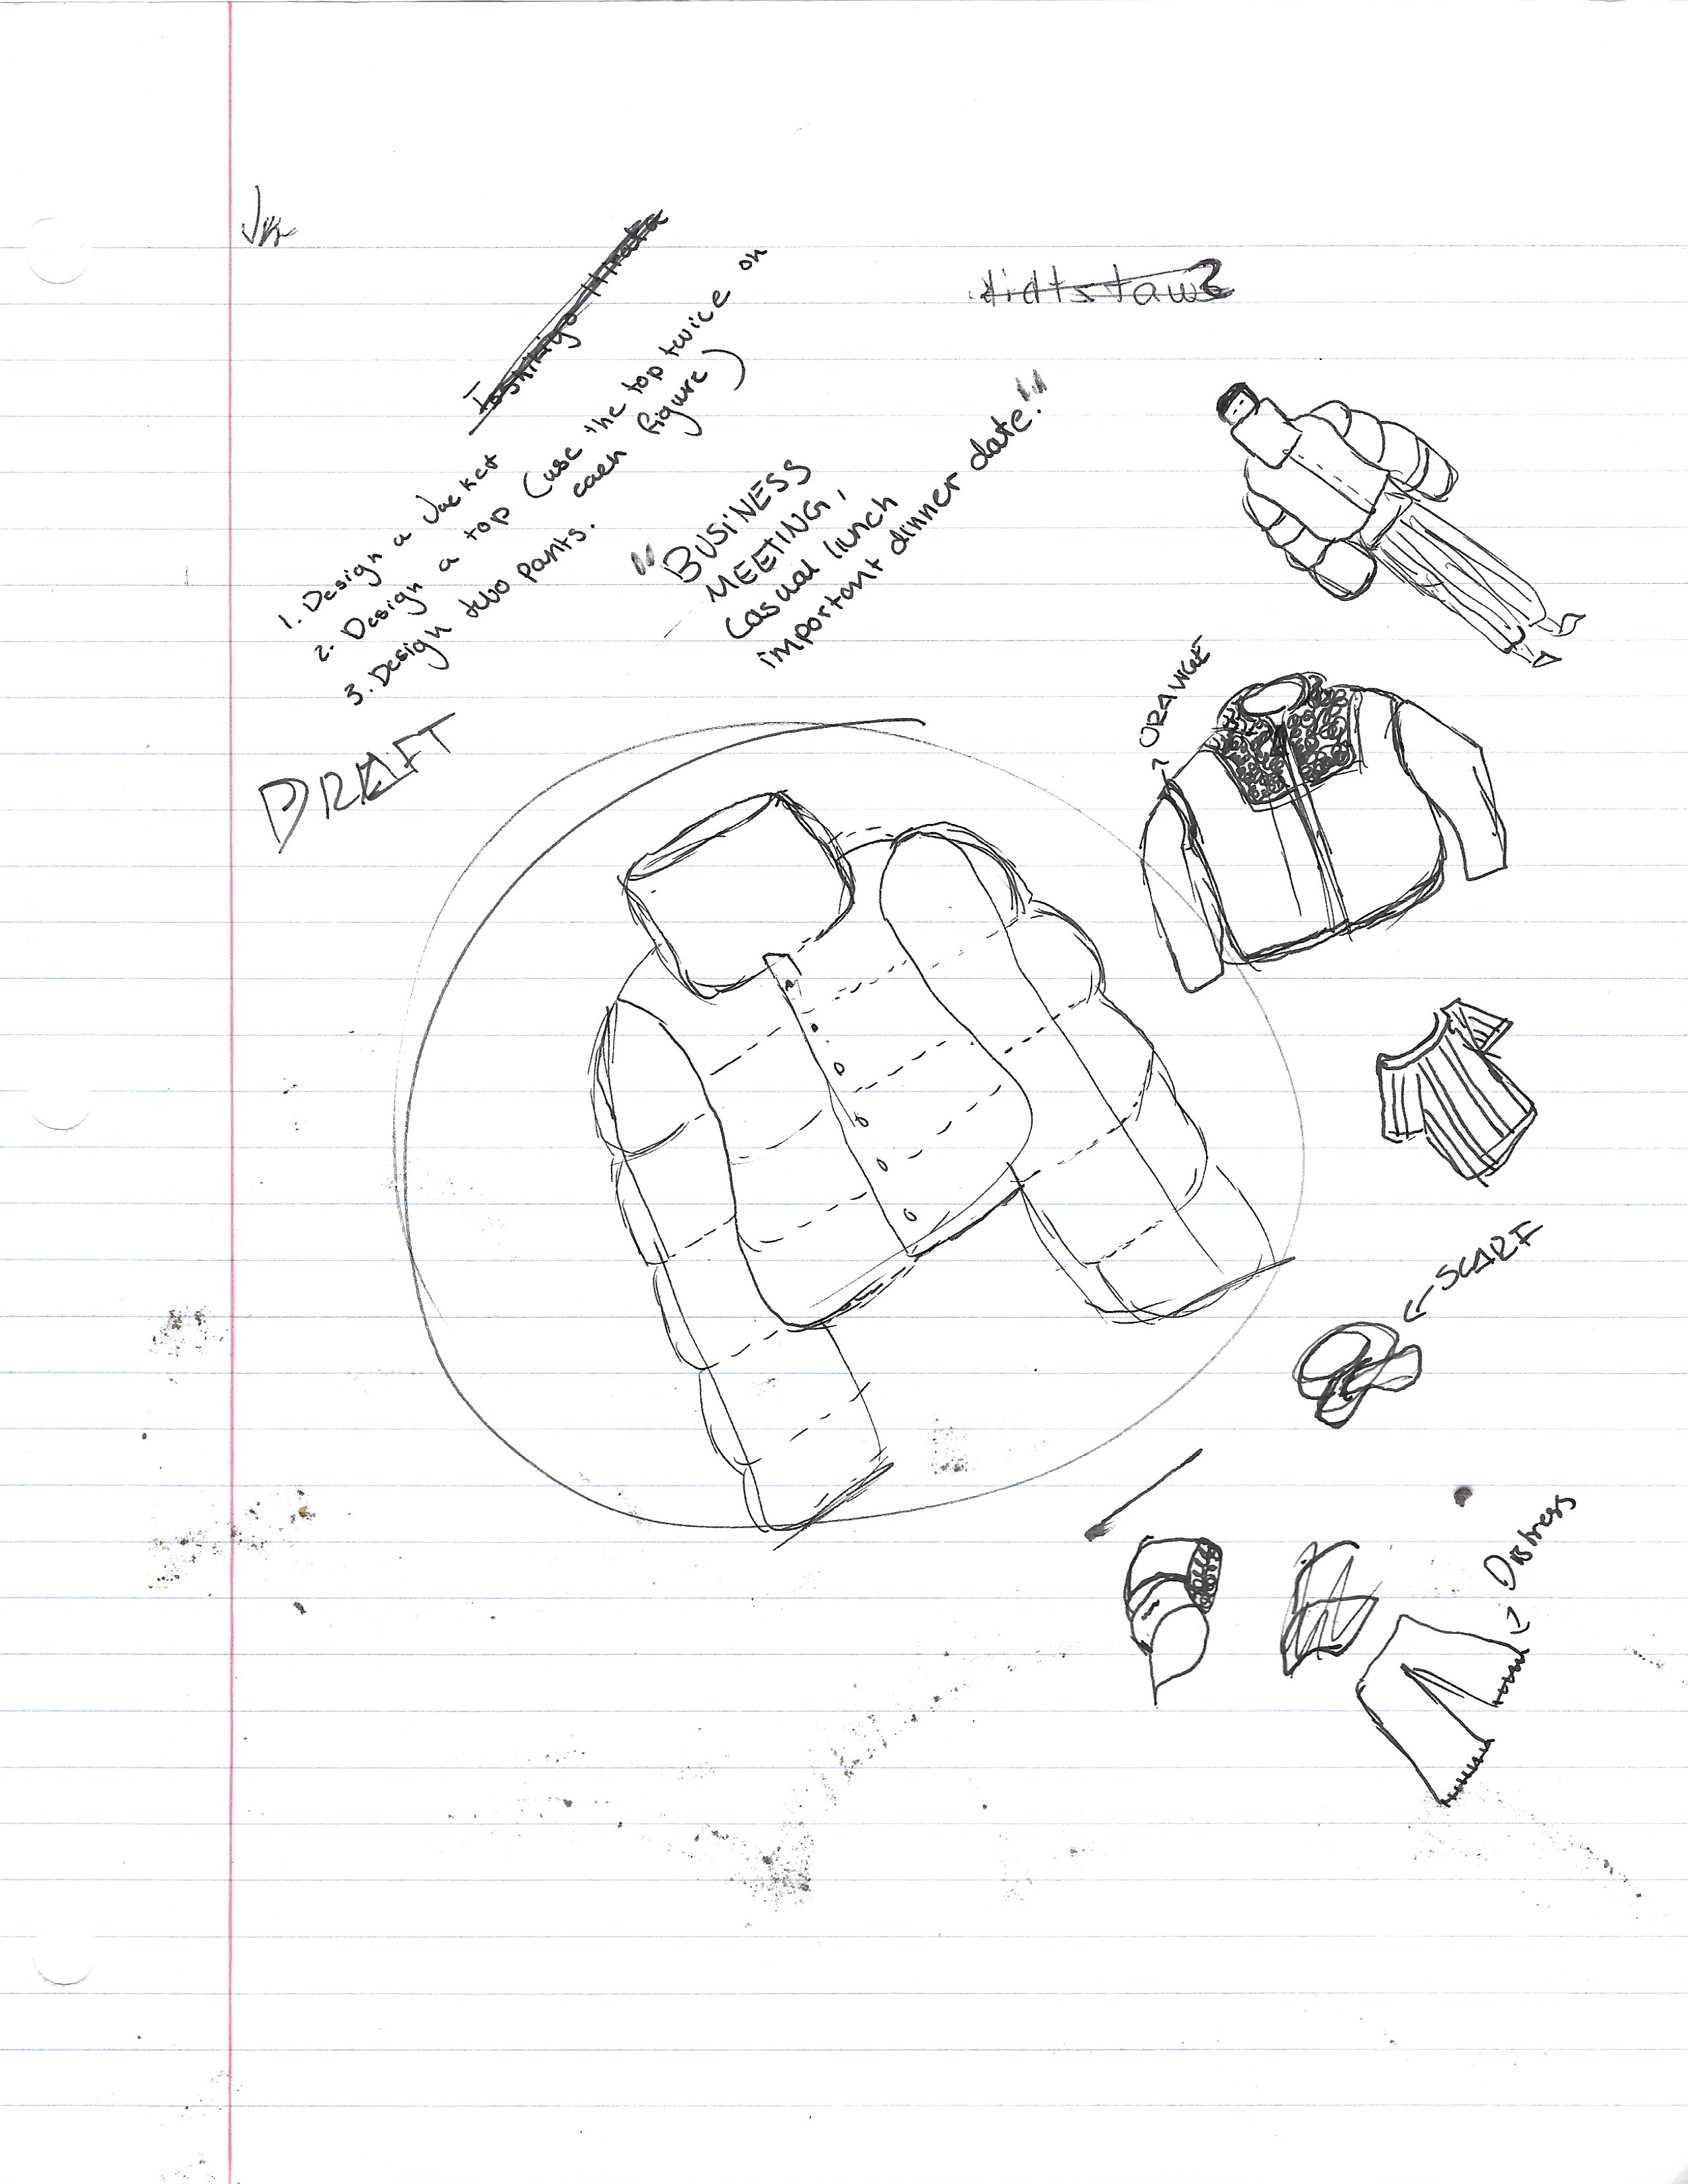 1. Design a Jacket
2. Design a top (use the top twice on
each figure)
3. Design two pants.
"BUSINESS
MEETING,
Casual lunch
important dinner date."
DRAFT
ORANGE
SCARF
Distress